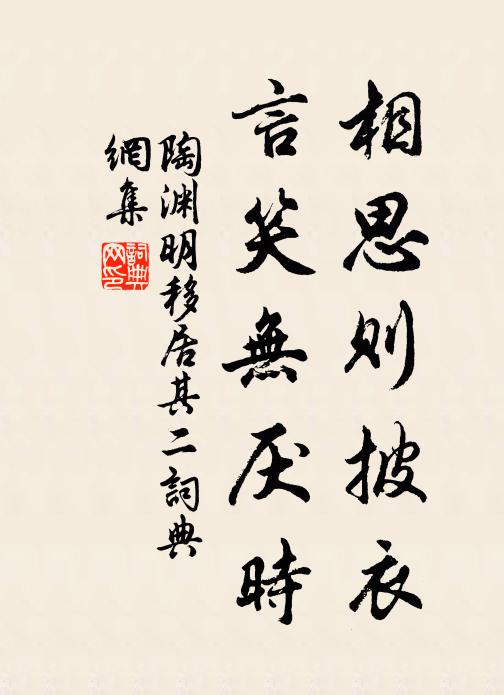 相思则披衣
言笑無厌時
陶渊明移居其二詞典
網集
詞典
网印